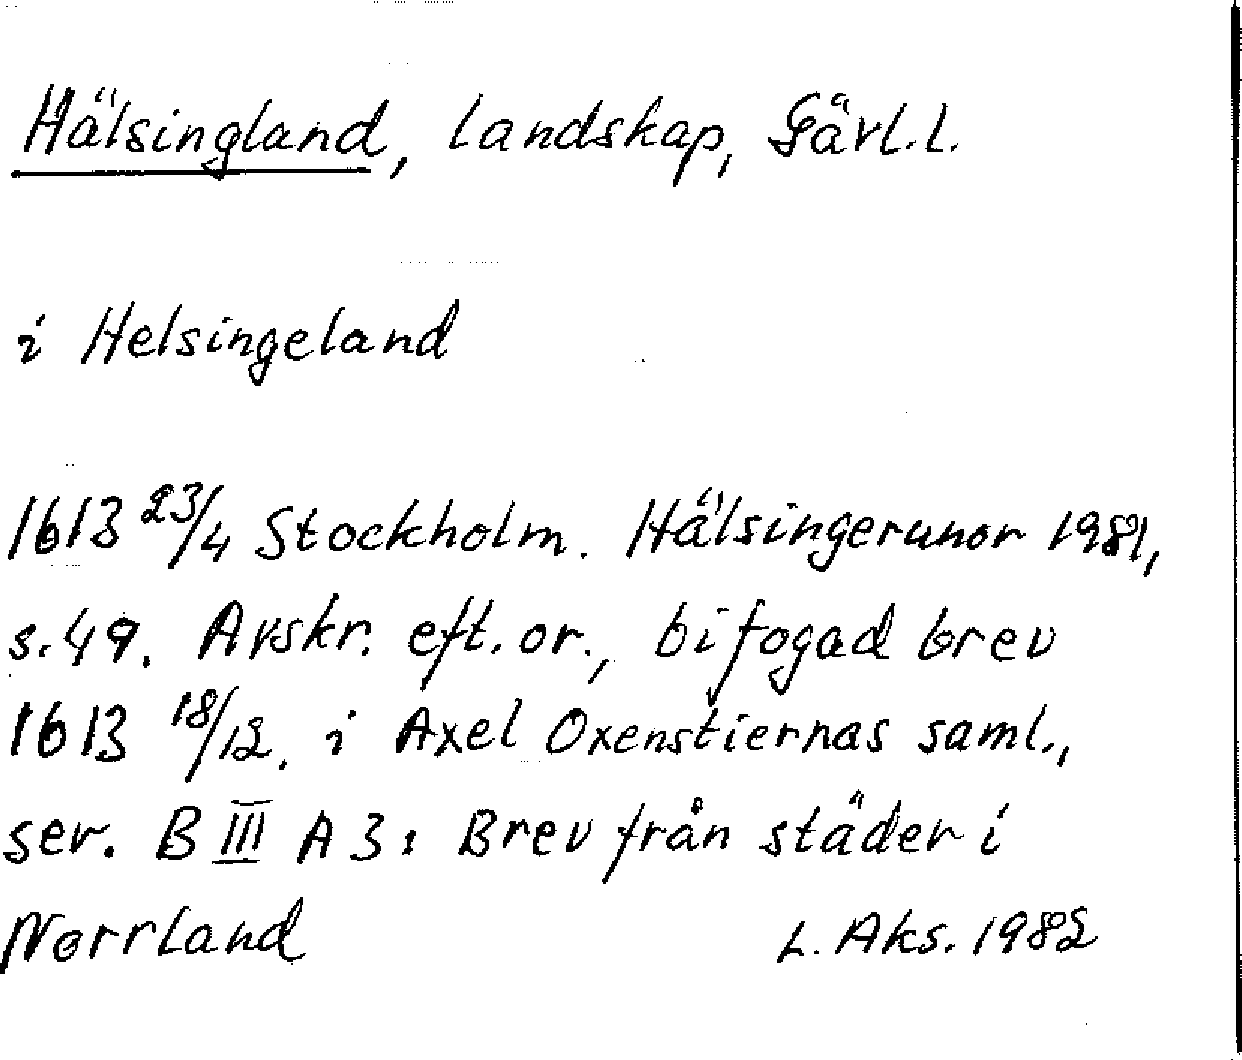 Hälsingland, landskap, Gävl.l.
i Helsingeland
1613 23/4 Stockholm. Hälsingerunor 1981,
s.49. Avskr. eft. or., bifogad brev
1613 18/12. i Axel Oxenstiernas saml.,
ser. B III A 3: Brev från städer i
Norrland L. Aks. 1982